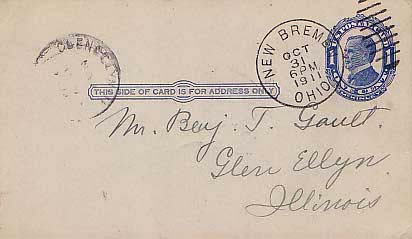 GLEN ELLYN
NEW BREMEN
OCT
31
6 PM
1911
OHIO
U.S. POSTAGE
1
THIS SIDE OF CARD IS FOR ADDRESS ONLY
Mr. Benj. T. Gault.
Glen Ellyn
Illinois